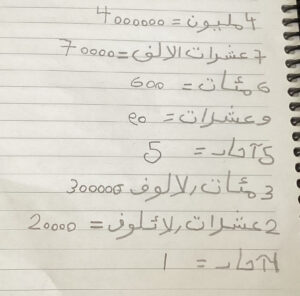 4 مليون = 4000000
7 عشرات الالف = 70000
6 مئات = 600
9 عشرات = 90
5 آحاد = 5
3 مئات الالوف 300000
2 عشرات الالوف = 20000
1 آحاد = 1